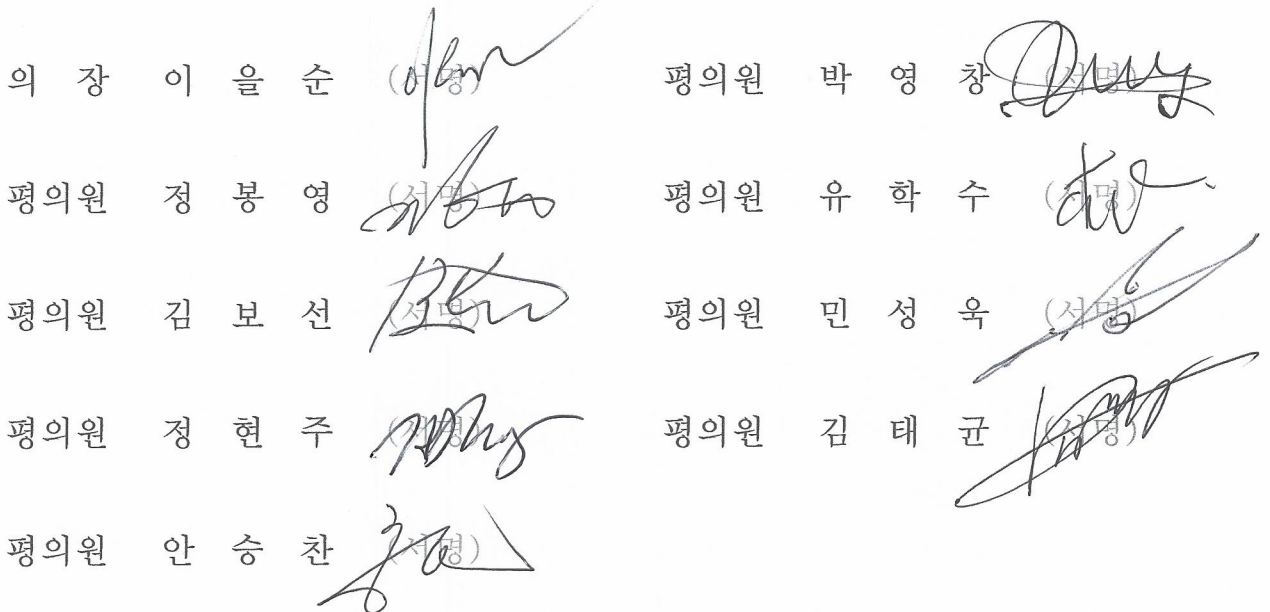 의 장 이 을 순 (서명)
평의원 정 봉 영 (서명)
평의원 김 보 선 (서명)
평의원 정 현 주 (서명)
평의원 안 승 찬 (서명)
평의원 박 영 창 (서명)
평의원 유 학 수 (서명)
평의원 민 성 욱 (서명)
평의원 김 태 균 (서명)